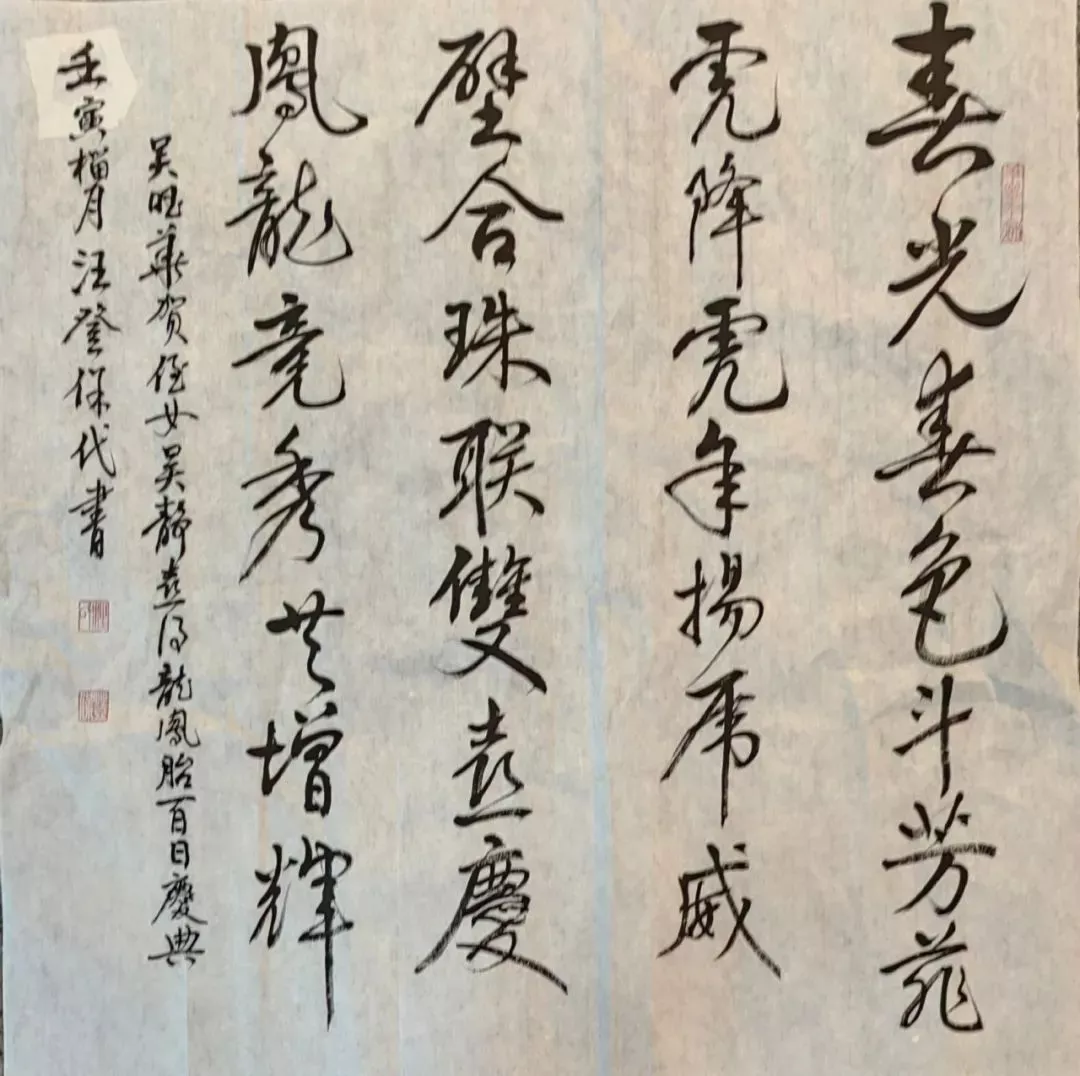 春光春色斗芳菲
虎降虎年揚虎威
壁合珠联雙喜慶
鳳龍競秀共增輝
吴旺華贺侄女吴静喜得龍鳳胎百日慶典
壬寅榴月汪登保代書